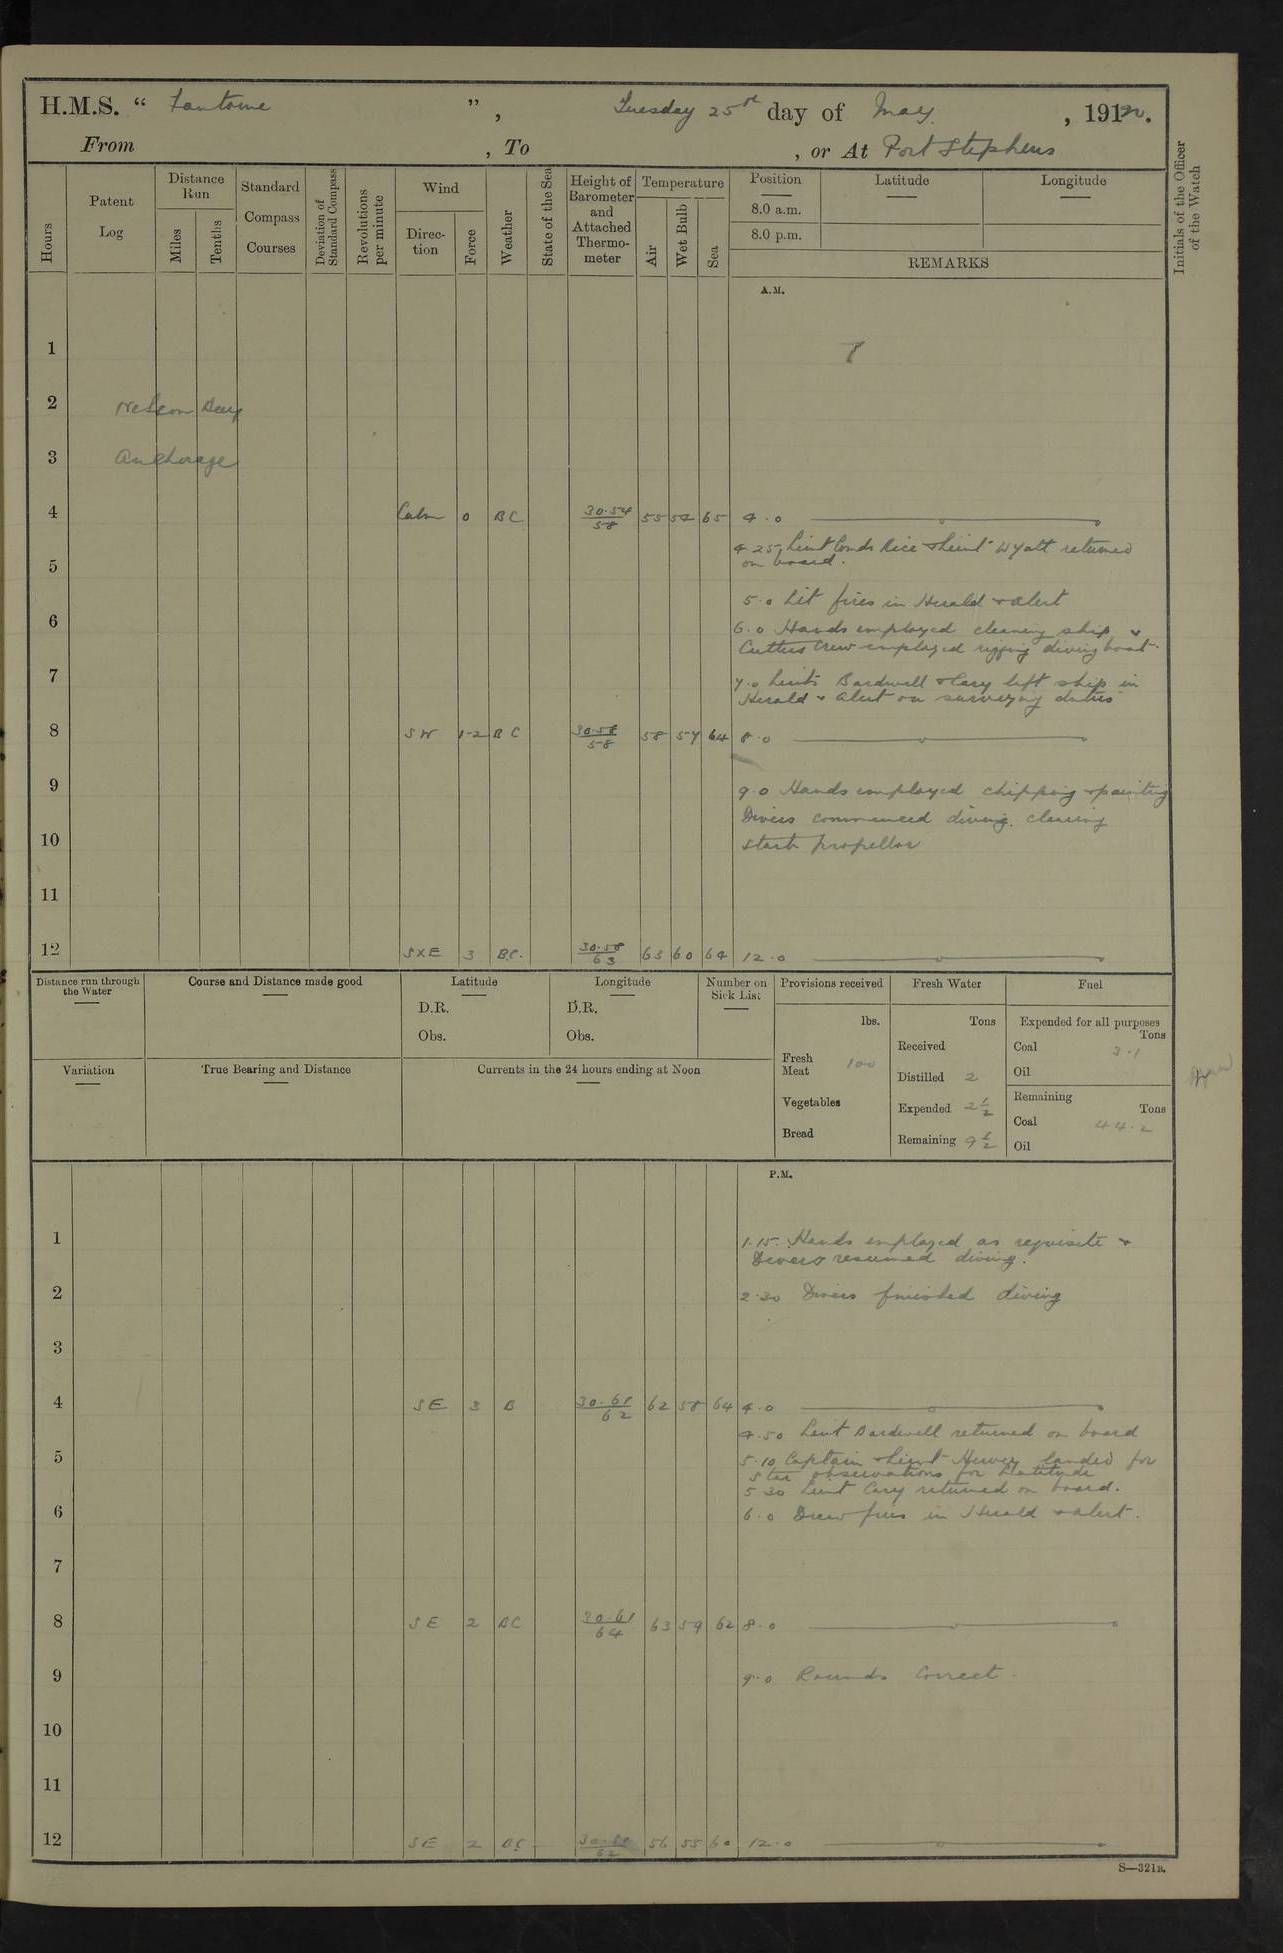 H.M.S. " Fantome ", Tuesday 25th day of May, 191
From , To , or At Port Stephens
Hours
Patent Log
Distance Run
Miles
Tenths
Standard Compass Courses
Deviation of Standard Compass
Revolutions per minute
Wind
Direction
Force
Weather
State of the Sea
Height of Barometer and Attached Thermometer
Temperature
Air
Wet Bulb
Sea
Position
8.0 a.m.
8.0 p.m.
Latitude
Longitude
REMARKS
Initials of the Officer of the Watch
A.M.
1
2 Nelson Bay
3 Anchorage
4 Calm 0 BC 30.54 58 55 54 65 4.0
4.25 Lieut Comdr Rice & Lieut Wyatt returned
on board.
5
5.0 Lit fires in Herald & Alert
6
6.0 Hands employed cleaning ship &
Cutters Crew employed rigging diving boat.
7
7.0 Lieuts Bardwell & Cary left ship in
Herald & Alert on surveying duties
8 SW 1-2 BC 30.58 58 58 57 64 8.0
9
9.0 Hands employed chipping & painting
Divers commenced diving, clearing
10
starb propellor
11
12 SXE 3 BC. 30.58 63 63 60 64 12.0
Distance run through the Water
Course and Distance made good
Latitude
D.R.
Obs.
Longitude
D.R.
Obs.
Number on Sick List
Provisions received
lbs.
Fresh Meat 100
Vegetables
Bread
Fresh Water
Tons
Received
Distilled 2
Expended 2½
Remaining 9½
Fuel
Expended for all purposes
Tons
Coal 3.1
Oil
Remaining
Tons
Coal 44.2
Oil
Variation
True Bearing and Distance
Currents in the 24 hours ending at Noon
P.M.
1
1.15. Hands employed as requisite &
Divers resumed diving.
2
2.30 Divers finished diving
3
4 SE 3 B 30.61 62 62 58 64 4.0
4.50 Lieut Bardwell returned on board
5
5.10 Captain & Lieut Harvey landed for
Star observations for Latitude
5.30 Lieut Cary returned on board.
6
6.0 Drew fires in Herald & Alert.
7
8 SE 2 BC 30.61 64 63 59 62 8.0
9
9.0 Rounds Correct.
10
11
12 SE 2 BC 62 56 55 60 12.0
S—321B.